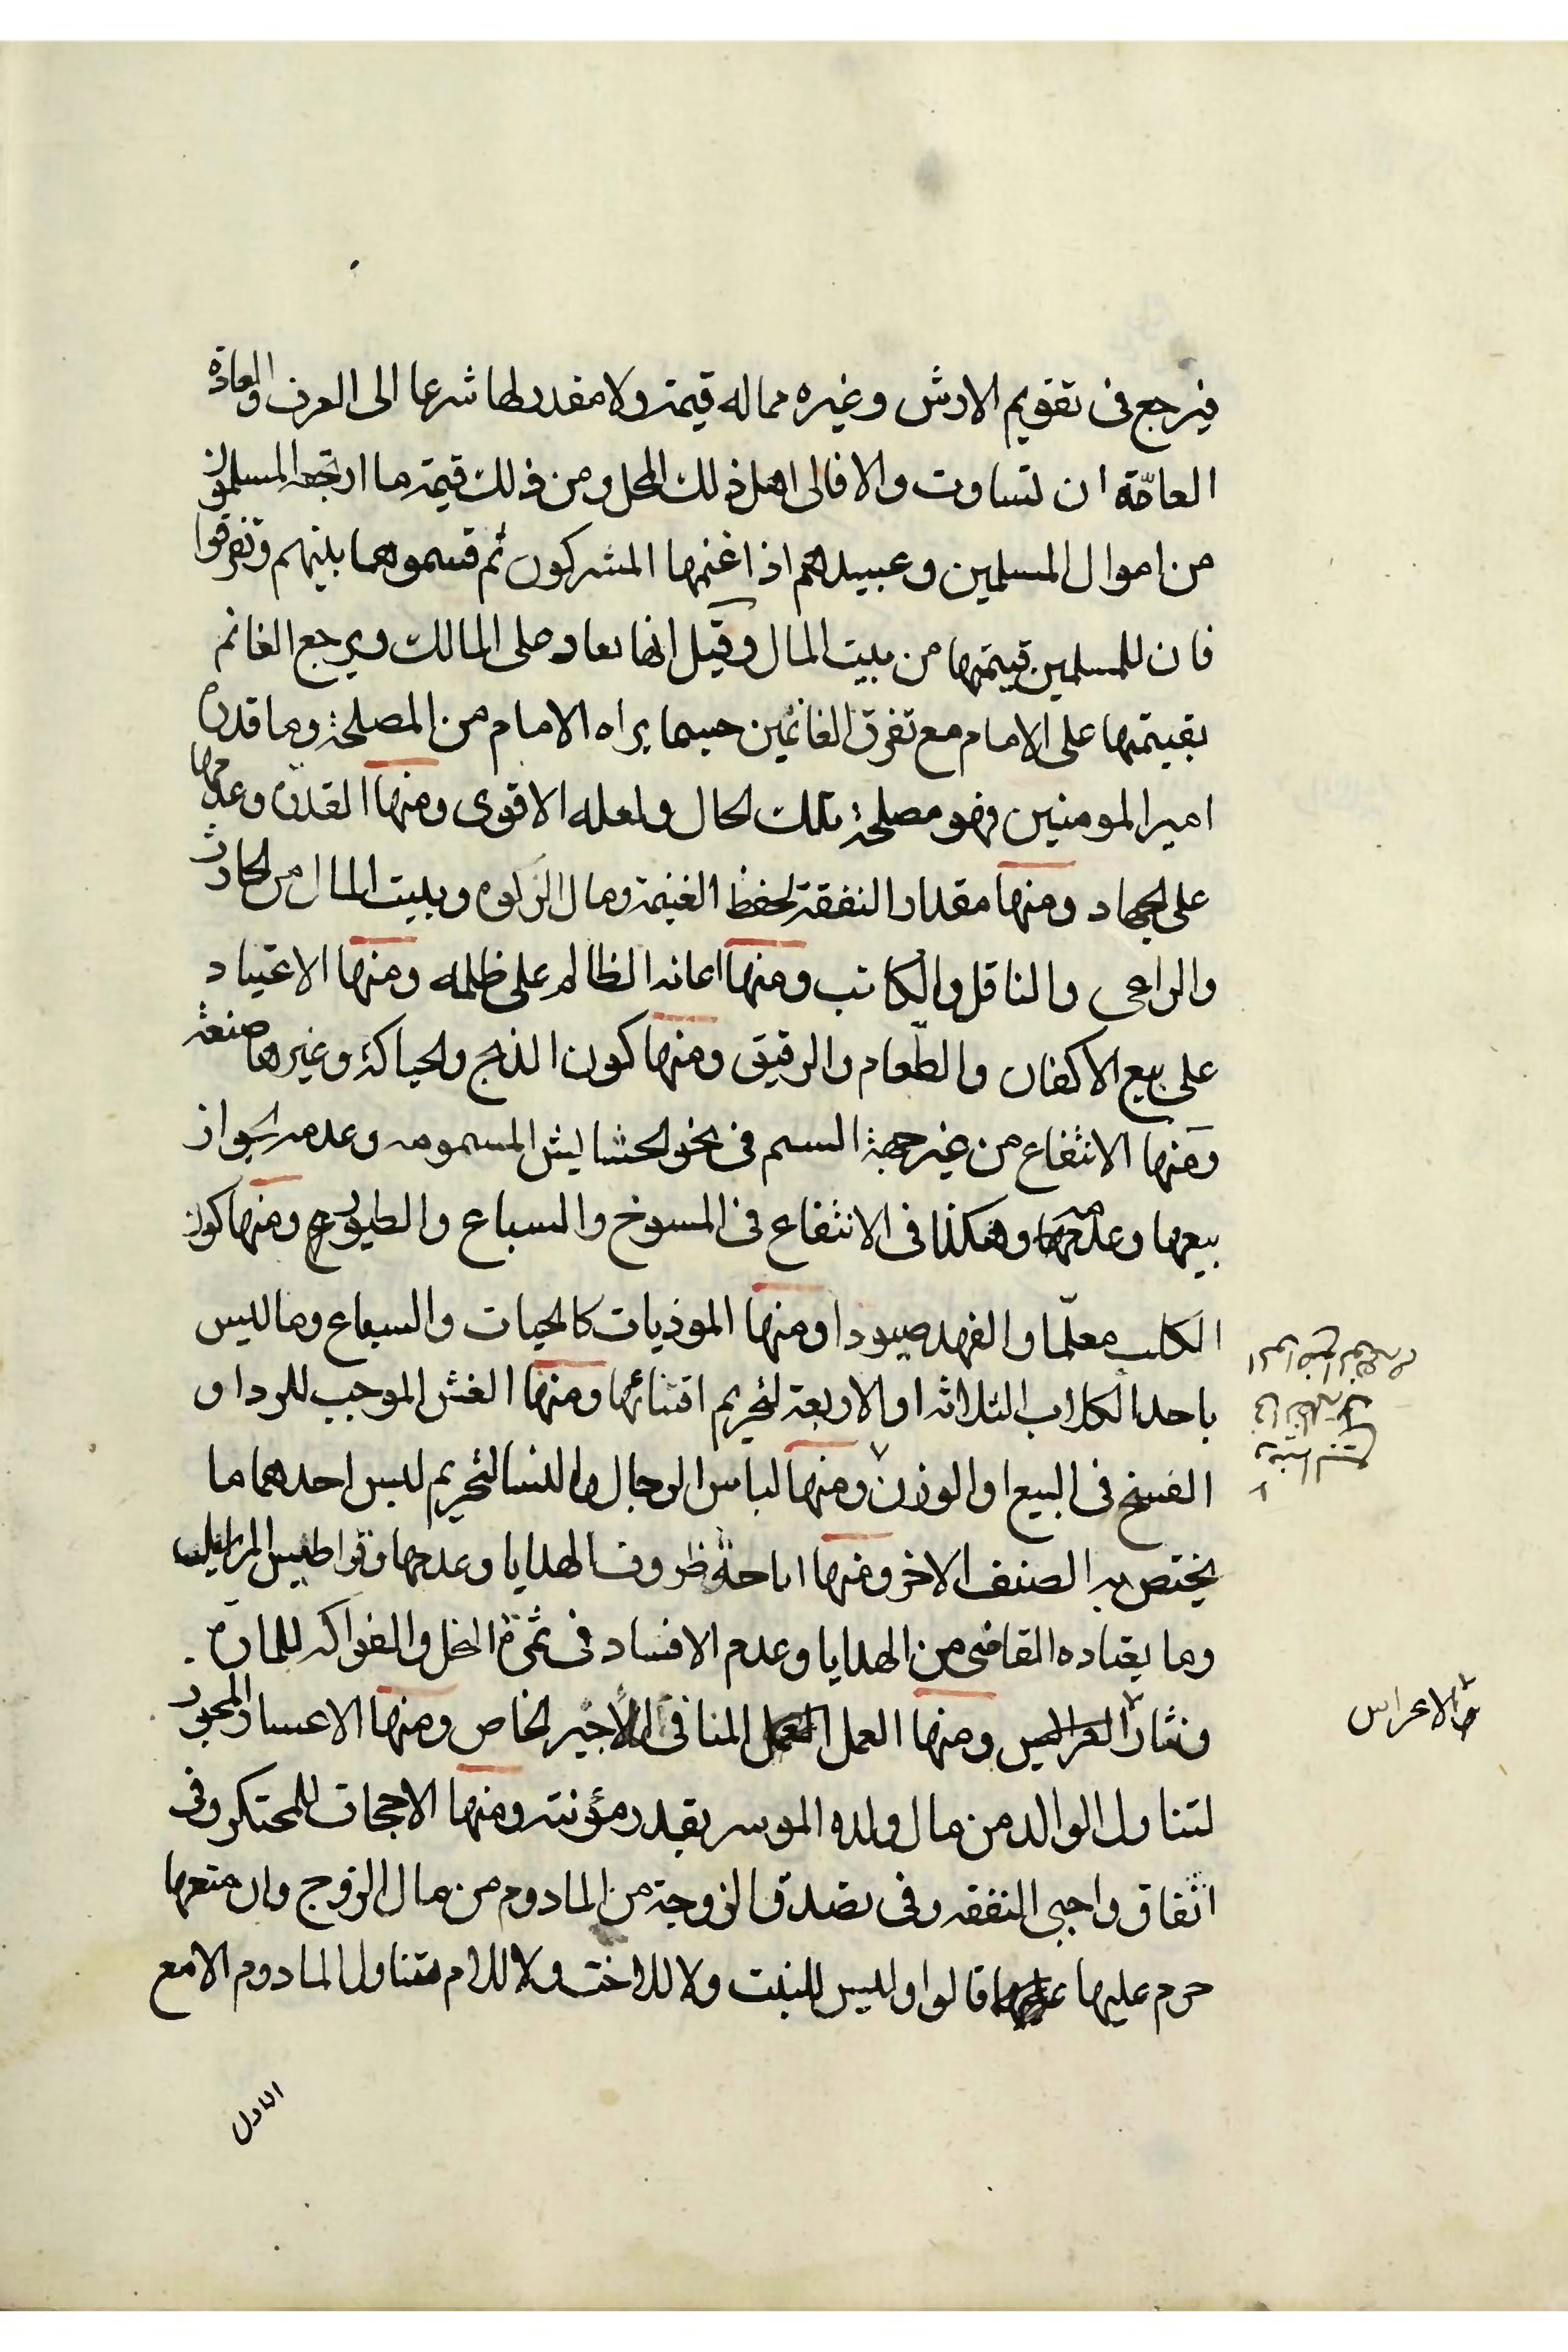 فيرجع فى تقويم الارش وغيره مما له قيمة ولا مقدر لها شرعا الى العرف والعادة
العامّة ان تساوت والا فالى اهل ذلك المحل ومن ذلك قيمة ما ارتجعه المسلمون
من اموال المسلمين وعبيدهم اذا غنمها المشركون ثم قسموها بينهم وتفرقوا
فان للمسلمين قيمتها من بيت المال وقيل انها تعاد على المالك ويرجع الغانم
بقيمتها على الامام مع تفرق الغانمين حسبما يراه الامام من المصلحة وما قدره
امير المومنين فهو مصلحة تلك الحال ولعله الاقوى ومنها القدرة وعدمها
على الجهاد ومنها مقدار النفقة لحفظ الغنيمة ومال الزكوة وبيت المال من الحارث
والراعى والناقل والكاتب ومنها اعانه الظالم على ظلمه ومنها الاعتياد
على بيع الاكفان والطّعام والرقيق ومنها كون الذبح والحياكة وغيرها صنعة
ومنها الانتفاع من غير جهة السم فى نحو الحشايش المسمومه وعدمه لجواز
بيعها وعدمه وهكذا فى الانتفاع فى المسوخ والسباع والطيور ومنها كون
الكلب معلّما والفهد صيودا ومنها الموذيات كالحيات والسباع وما ليس
باحد الكلاب الثلاثه او الاربعة لتحريم اقتنائها ومنها الغش الموجب للرد او
الفسخ فى البيع او الوزن ومنها لباس الرجال والنسا لتحريم لبس احدهما ما
يختص به الصنف الاخر ومنها اباحة ظروف الهدايا وعدمها وقراطيس
وما يعتاده القاضى من الهدايا وعدم الافساد فى ثمرة النخل والفواكه للمارة
ونثار ومنها العمل المنافى للاجير الخاص ومنها الاعسار المجوز
لتناول الوالد من مال ولده الموسر بقدر مؤنته ومنها الاجحاف للمحتكر وفى
انفاق واجبى النفقه وفى تصدق الزوجة من المادوم من مال الزوج وان منعها
حرم عليها قالوا وليس للبنت ولا للاخت ولا للام تناول المادوم الا مع
الاعراس
الاول